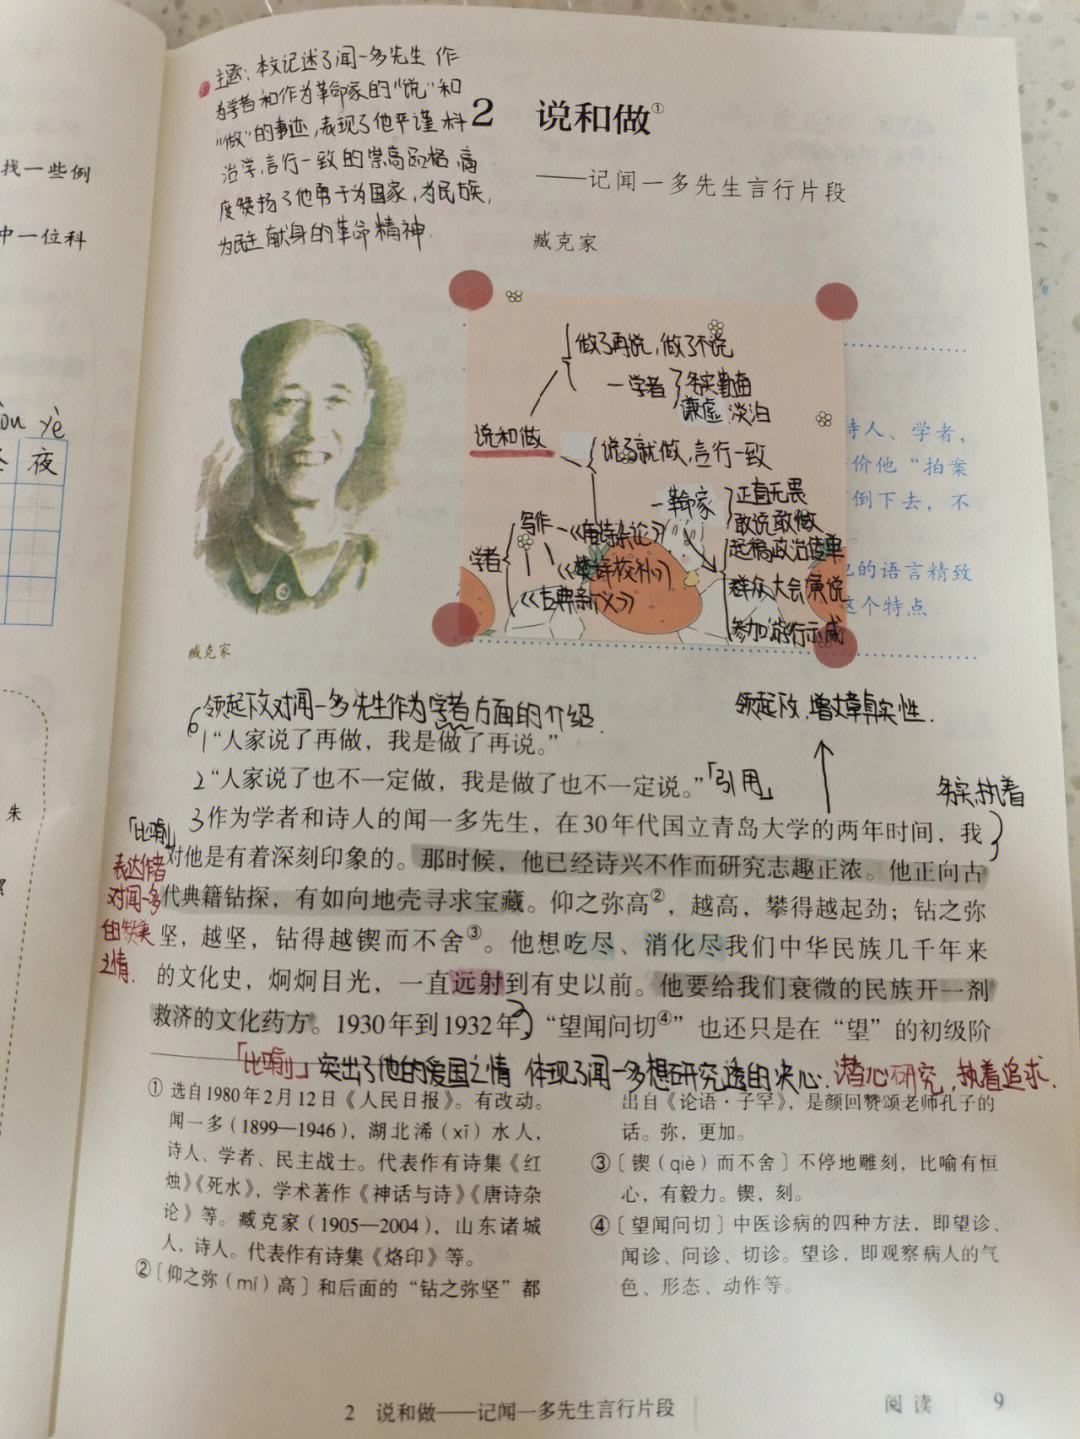 主题：本文记述了闻一多先生 作
为学者和作为革命家的“说”和
“做”的事迹，表现了他严谨
治学，言行一致的崇高品格，高
度赞扬了他勇于为国家，为民族，
为民主献身的革命精神.
2 说和做①
——记闻一多先生言行片段
臧克家
找一些例
中一位科
yè
夜
朱
做了再说，做了不说
—学者
务实
谦虚 淡泊
说和做
说了就做，言行一致
—革命家
正直无畏
敢说敢做
起稿政治传单
群众大会演说
参加游行示威
学者
写作—《唐诗杂论》
《楚辞校补》
《古典新义》
诗人、学者，
价他“拍案
倒下去，不
的语言精致
这个特点
臧克家
领起下文对闻一多先生作为学者方面的介绍.
领起下文，增文章真实性.
1“人家说了再做，我是做了再说。”
2“人家说了也不一定做，我是做了也不一定说。”「引用」
务实，执着
3作为学者和诗人的闻一多先生，在30年代国立青岛大学的两年时间，我
对他是有着深刻印象的。那时候，他已经诗兴不作而研究志趣正浓。他正向古
代典籍钻探，有如向地壳寻求宝藏。仰之弥高②，越高，攀得越起劲；钻之弥
坚，越坚，钻得越锲而不舍③。他想吃尽、消化尽我们中华民族几千年来
的文化史，炯炯目光，一直远射到有史以前。他要给我们衰微的民族开一剂
救济的文化药方。1930年到1932年，“望闻问切④”也还只是在“望”的初级阶
「比喻」
表达作者
对闻一多
的赞美
之情.
「比喻」突出了他的爱国之情 体现了闻一多想研究透的决心.潜心研究，执着追求.
① 选自1980年2月12日《人民日报》。有改动。
闻一多（1899—1946），湖北浠（xī）水人，
诗人、学者、民主战士。代表作有诗集《红
烛》《死水》，学术著作《神话与诗》《唐诗杂
论》等。臧克家（1905—2004），山东诸城
人，诗人。代表作有诗集《烙印》等。
②〔仰之弥（mí）高〕和后面的“钻之弥坚”都
出自《论语·子罕》，是颜回赞颂老师孔子的
话。弥，更加。
③〔锲（qiè）而不舍〕不停地雕刻，比喻有恒
心，有毅力。锲，刻。
④〔望闻问切〕中医诊病的四种方法，即望诊、
闻诊、问诊、切诊。望诊，即观察病人的气
色、形态、动作等。
2 说和做——记闻一多先生言行片段
阅读 9